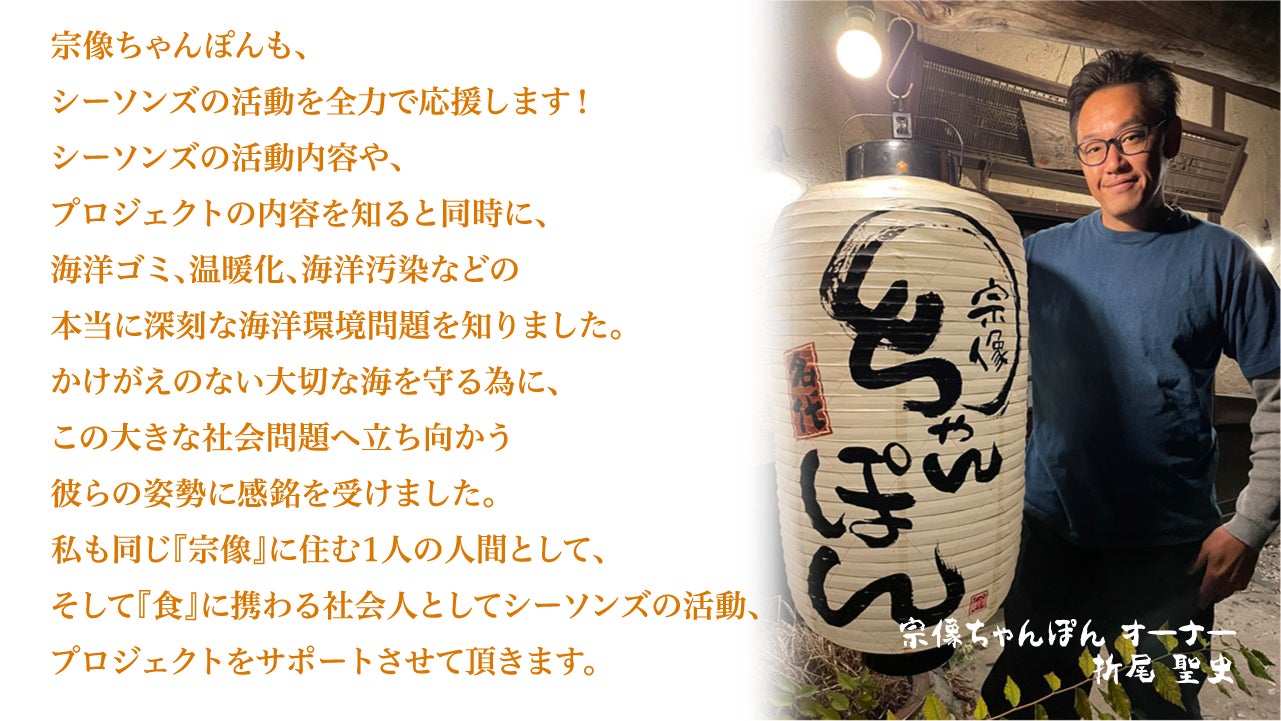 宗像ちゃんぽんも、
シーソンズの活動を全力で応援します！
シーソンズの活動内容や、
プロジェクトの内容を知ると同時に、
海洋ゴミ、温暖化、海洋汚染などの
本当に深刻な海洋環境問題を知りました。
かけがえのない大切な海を守る為に、
この大きな社会問題へ立ち向かう
彼らの姿勢に感銘を受けました。
私も同じ『宗像』に住む1人の人間として、
そして『食』に携わる社会人としてシーソンズの活動、
プロジェクトをサポートさせて頂きます。
宗像
ちゃん
ぽん
名代
宗像ちゃんぽん オーナー
折尾 聖史